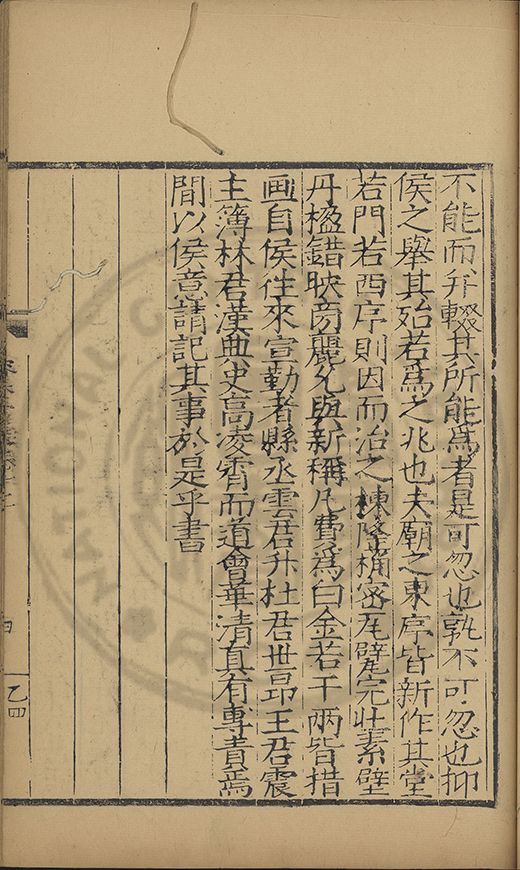 不能而并輟其所能爲者是可忽也孰不可忽也抑
侯之舉其殆若爲之兆也夫廟之東序皆新作其堂
若門若西序則因而治之棟隆桷密瓦甓完壯素壁
丹楹錯映旁麗允與新稱凡費爲白金若干兩皆措
画自侯往來宣勤者縣丞雲君升杜君世昂王君震
主簿林君漢典史高凌霄而道會華清真有專責焉
間以侯意請記其事於是乎書